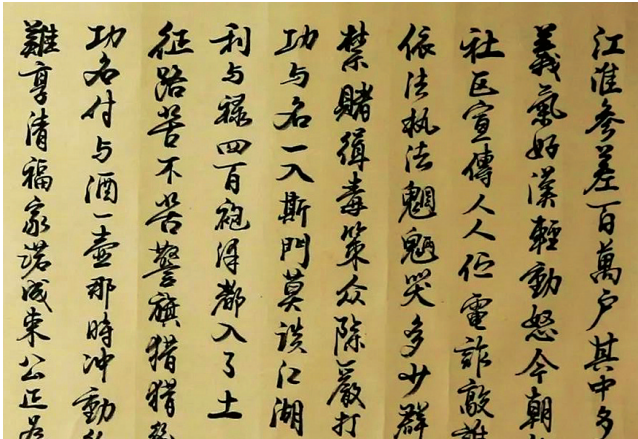 江淮参差百萬户其中多
義氣好漢輕動怒今朝
社区宣傳人人伍電詐敲詐
依法执法魍魉哭多少群
禁賭缉毒策众除嚴打
功与名一入斯門莫谈江湖
利与禄四百袍泽都入了土
征路苦不苦警旗猎猎
功名付与酒一壶那時冲動
難享清福家诺成東公正